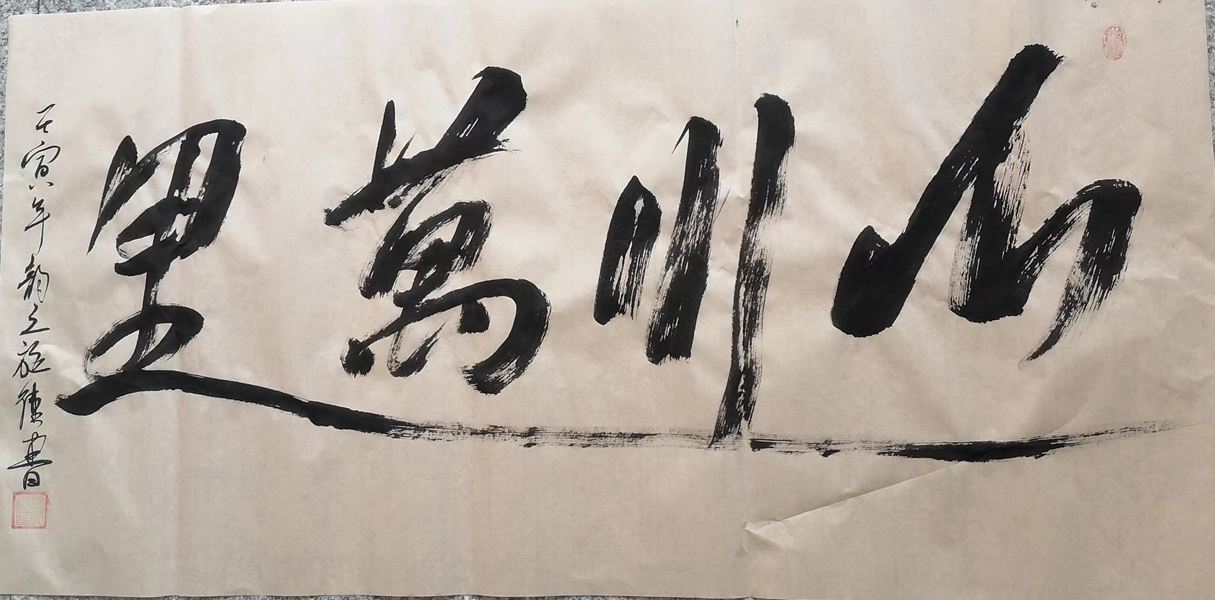 山川萬里
壬寅年韵之旋德書